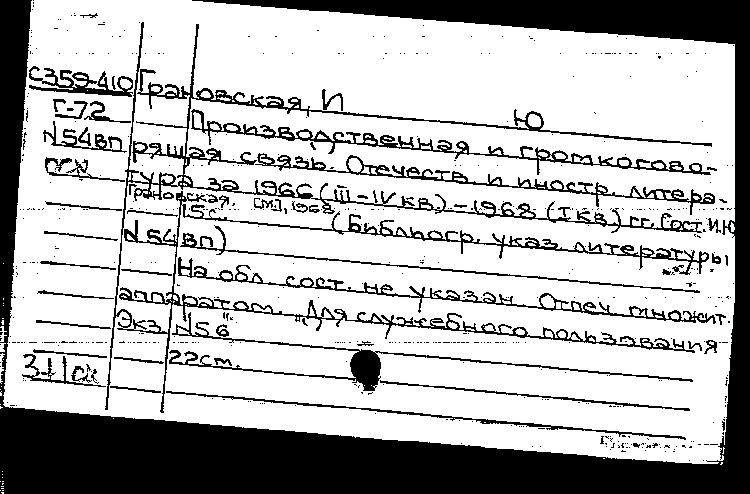 С359-410 Грановская, И Ю
Г-72 Производственная и громкогово-
N54вп рящая связь. Отечеств и иностр. литера-
тура за 1966 (III-IV кв) - 1968 (I кв) гг. Сост. И.Ю
Грановская. [М], 1968
15 с. (Библиогр. указ. литературы
N 54 вп)
На обл. сост. не указан. Отпеч множит.
аппаратом. "Для служебного пользования
Экз. N56".
22см.